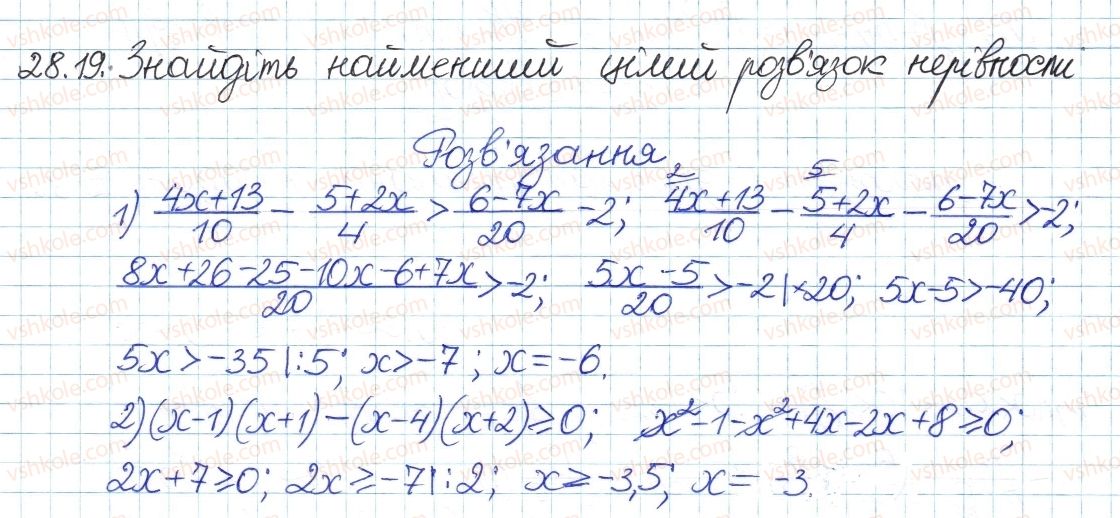 28.19. Знайдіть найменший цілий розв'язок нерівності
Розв'язання
1) (4x+13)/10 - (5+2x)/4 > (6-7x)/20 - 2; ²⁾(4x+13)/10 - ⁵⁾(5+2x)/4 - (6-7x)/20 > -2;
(8x+26-25-10x-6+7x)/20 > -2; (5x-5)/20 > -2 |×20; 5x-5 > -40;
5x > -35 |:5; x > -7; x = -6.
2) (x-1)(x+1) - (x-4)(x+2) ≥ 0; x²-1-x²+4x-2x+8 ≥ 0;
2x+7 ≥ 0; 2x ≥ -7 |:2; x ≥ -3,5; x = -3.